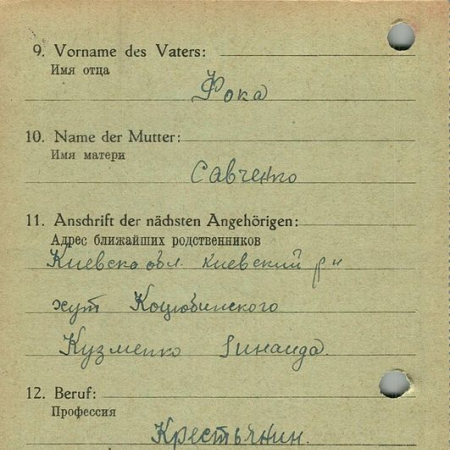 9. Vorname des Vaters:
Имя отца
Фока
10. Name der Mutter:
Имя матери
Савченко
11. Anschrift der nächsten Angehörigen:
Адрес ближайших родственников
Киевска обл. Киевский р-н
хут Коцюбинского
Кузменко Зинаида.
12. Beruf:
Профессия
Крестьянин.